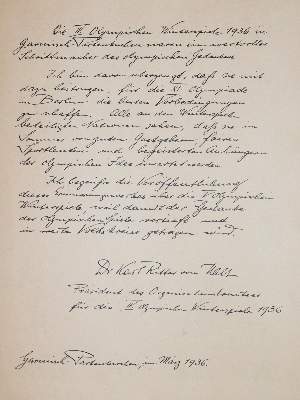 Die IV. Olympischen Winterspiele 1936 in
Garmisch-Partenkirchen waren ein wertvolles
des olympischen Gedankens
Ich bin davon überzeugt, daß sie mit
dazu beitragen, für die XI. Olympiade
in Berlin die besten Vorbedingungen
zu schaffen. Alle an den Winterspielen
beteiligten Nationen sahen, daß sie im
Sommer
Sportleuten und begeisterten Anhängern
der olympischen Idee erwartet werden.
Ich begrüße die Veröffentlichung
dieses über die IV. Olympischen
Winterspiele, weil damit der Gedanke
der Olympischen Spiele vertieft und
in weite Volkskreise getragen wird.
Dr. Karl Ritter von Halt
Präsident des Organisationskomitees
für die IV. Olympischen Winterspiele 1936
Garmisch-Partenkirchen, im März 1936.